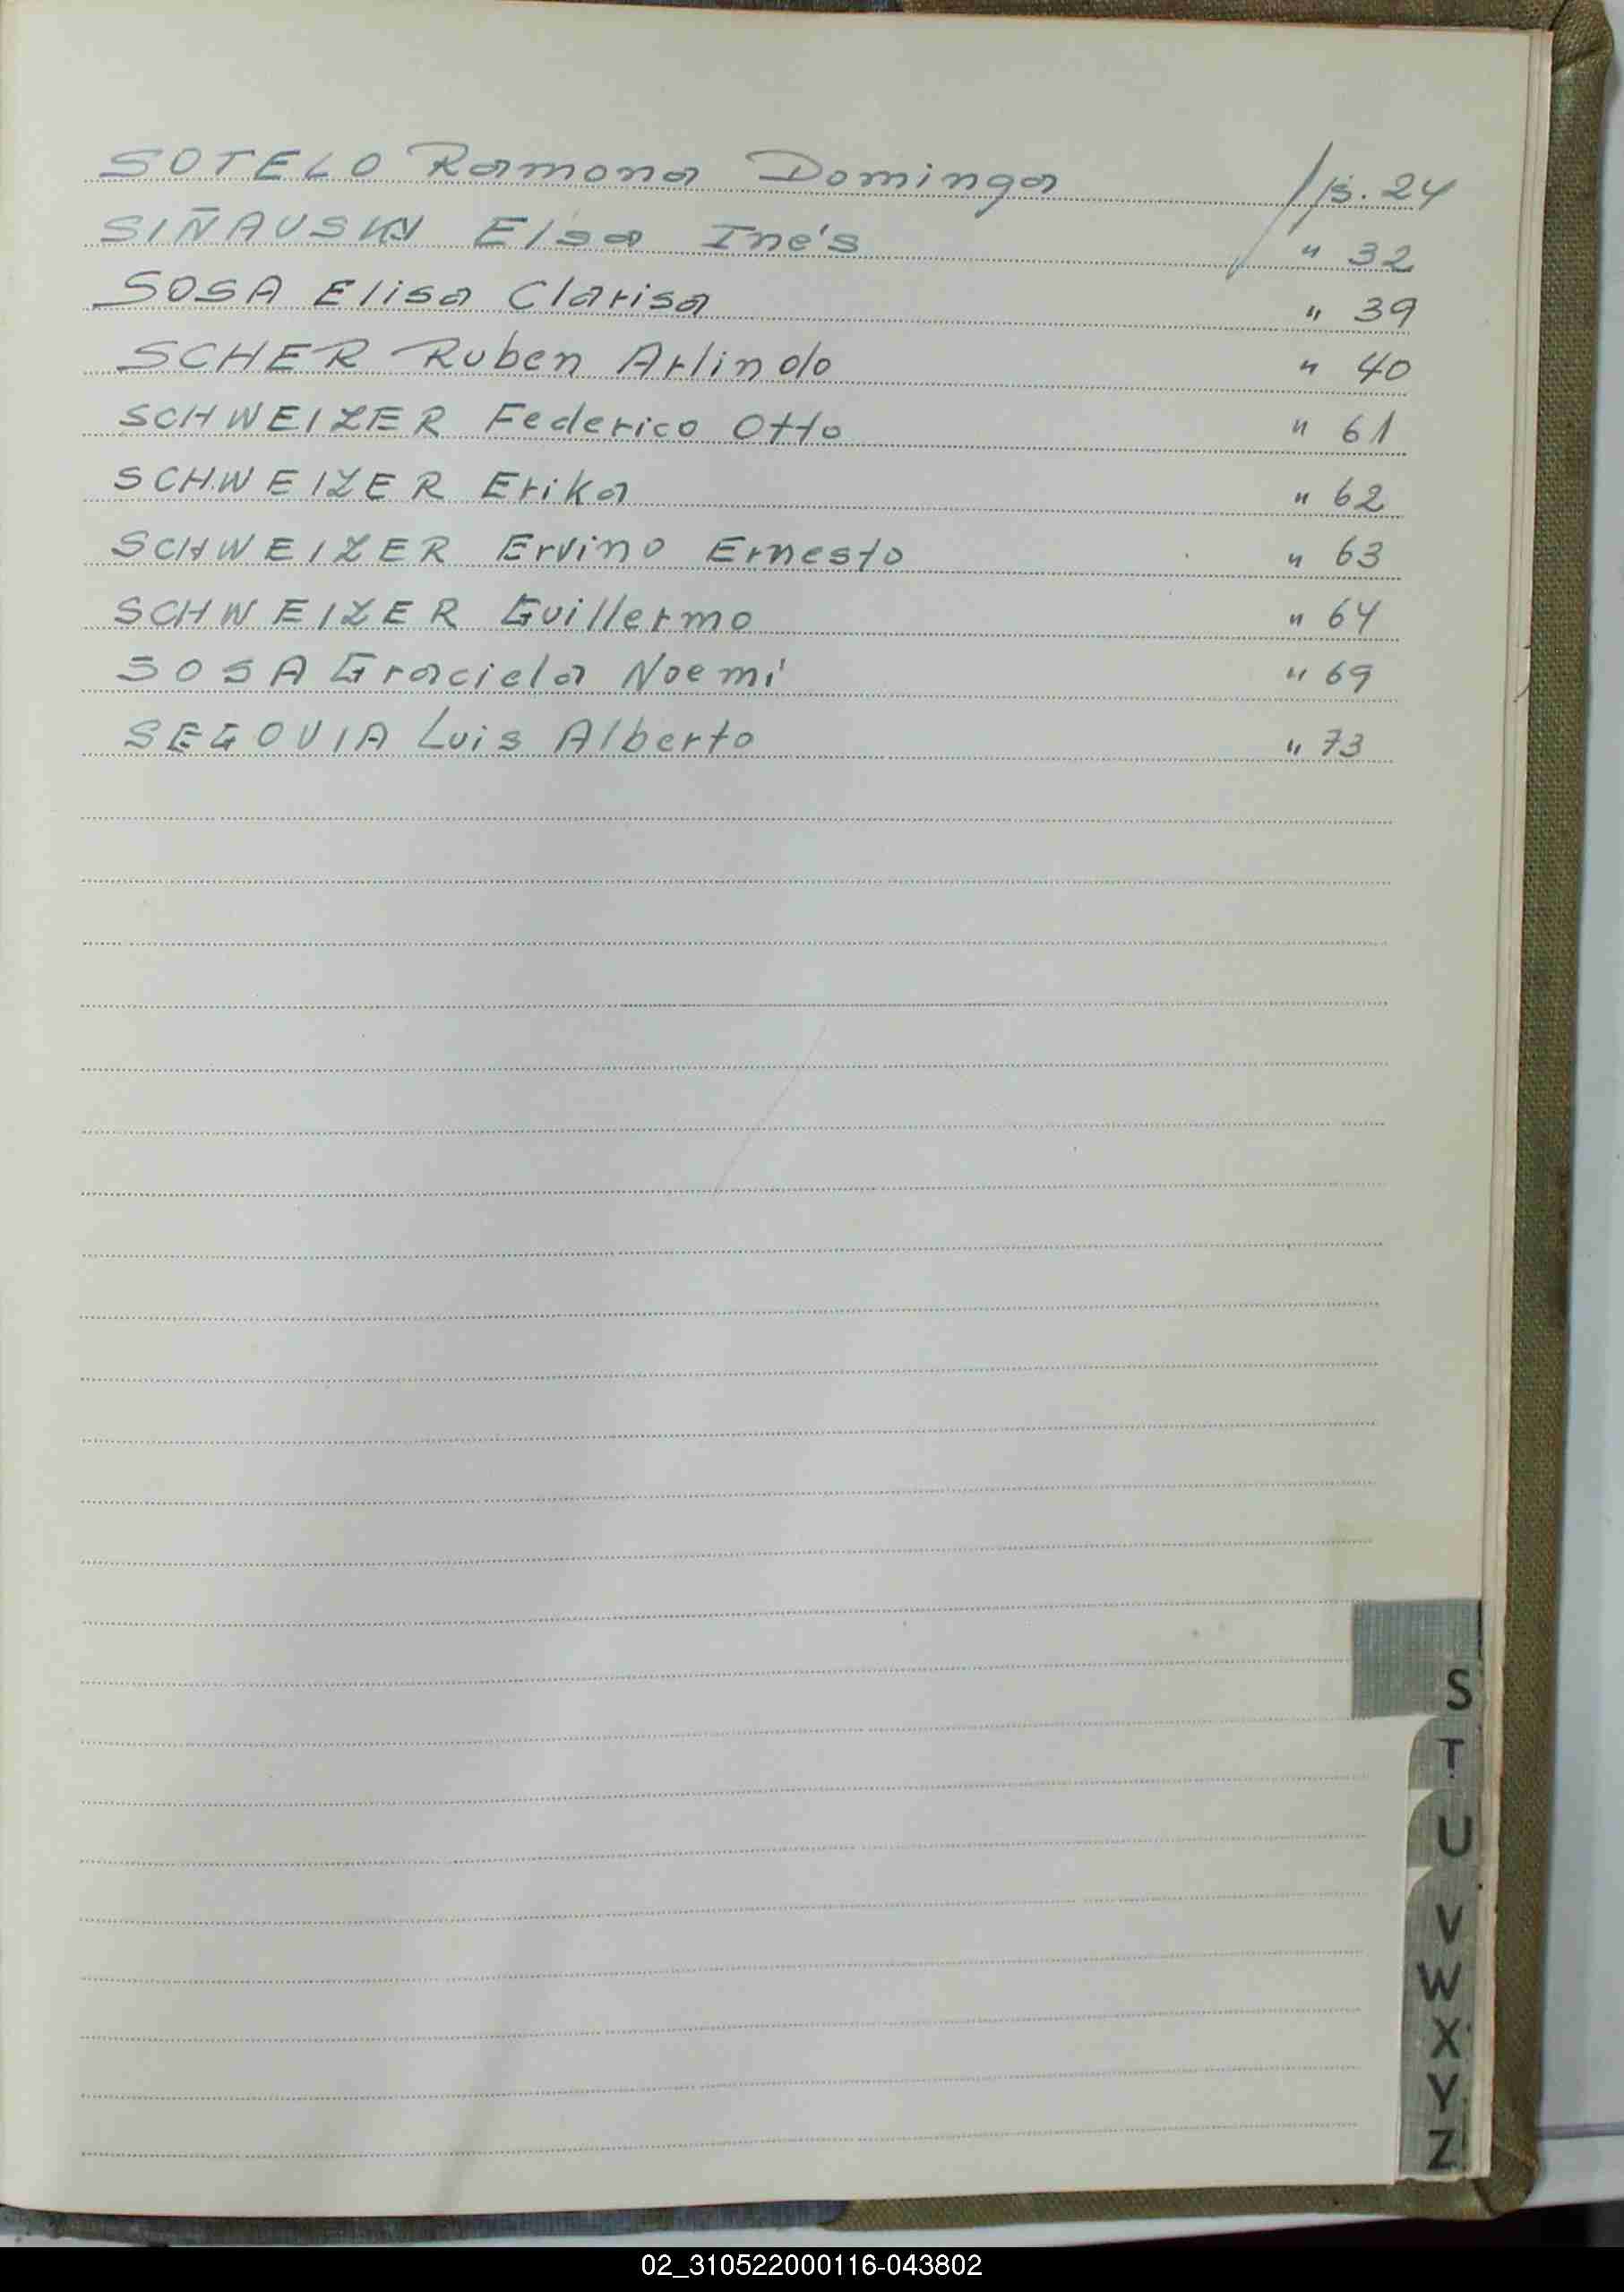 SOTELO Ramona Dominga fs. 24
SIÑAUSKY Elsa Inés " 32
SOSA Elisa Clarisa " 39
SCHER Ruben Arlindo " 40
SCHWEIZER Federico Otto " 61
SCHWEIZER Erika " 62
SCHWEIZER Ervino Ernesto " 63
SCHWEIZER Guillermo " 64
SOSA Graciela Noemí " 69
SEGOVIA Luis Alberto " 73
S
T
U
V
W
X
Y
Z
02_310522000116-043802